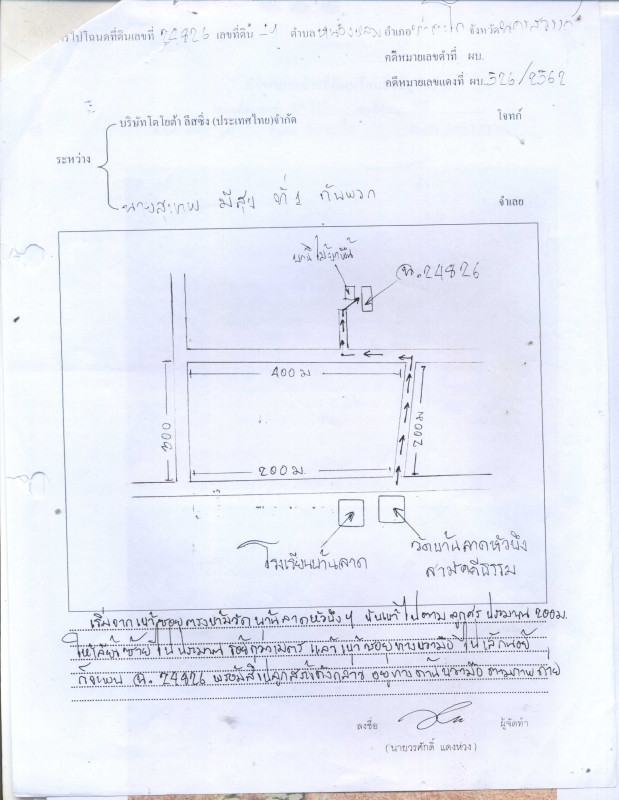 ารไปโฉนดที่ดินเลขที่ 24826 เลขที่ดิน ตำบล อำเภอ จังหวัด
คดีหมายเลขดำที่ ผบ.
คดีหมายเลขแดงที่ ผบ. 526/2562
บริษัทโตโยต้า ลีสซิ่ง (ประเทศไทย)จำกัด โจทก์
ระหว่าง
นายสุเทพ มีสุข ที่ 1 กับพวก จำเลย
ฉ.24826
400 ม
300
200 ม
200 ม.
โรงเรียนบ้านลาด
วัดบ้านลาดหัวบึง
สามัคคีธรรม
เริ่มจากเข้าซอยตรงข้ามวัดบ้านลาดหัวบึงฯ ขับเข้าไปตามลูกศร ประมาณ 200 ม.
ให้เลี้ยวซ้ายไปประมาณ ร้อยกว่าเมตร แล้วเข้าซอยทางขวามือไปเล็กน้อย
ก็จะพบ ฉ. 24826 พร้อมสิ่งปลูกสร้างดังกล่าว อยู่ทางด้านขวามือ ตามภาพถ่าย
ลงชื่อ ผู้จัดทำ
(นายวรศักดิ์ แดงห่วง)